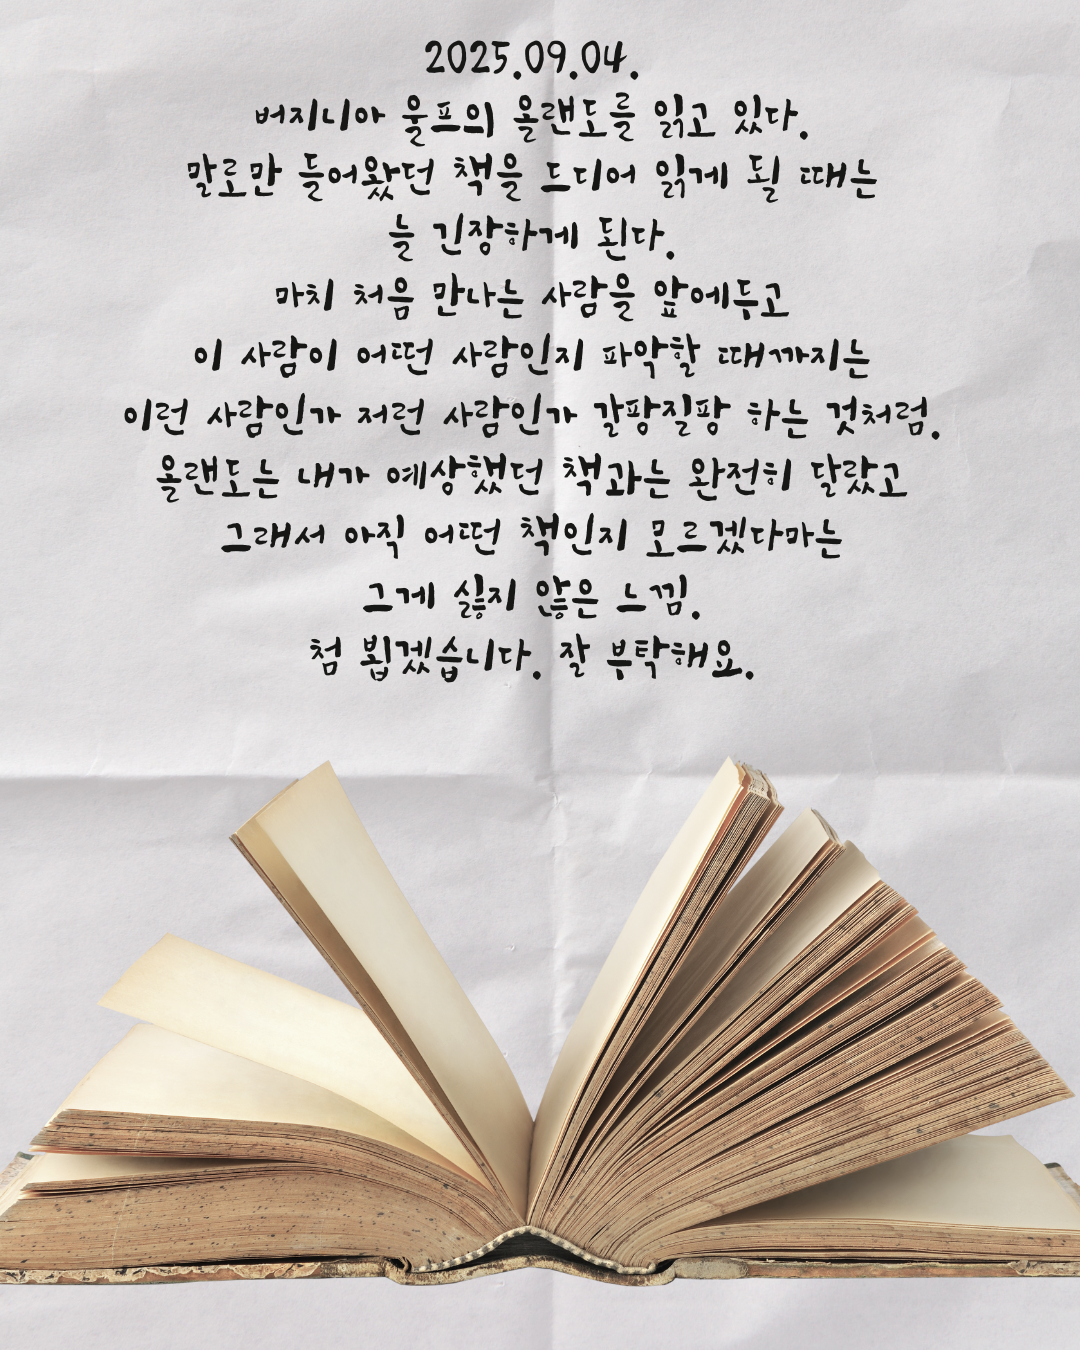 2025.09.04.
버지니아 울프의 올랜도를 읽고 있다.
말로만 들어왔던 책을 드디어 읽게 될 때는
늘 긴장하게 된다.
마치 처음 만나는 사람을 앞에두고
이 사람이 어떤 사람인지 파악할 때까지는
이런 사람인가 저런 사람인가 갈팡질팡 하는 것처럼.
올랜도는 내가 예상했던 책과는 완전히 달랐고
그래서 아직 어떤 책인지 모르겠다마는
그게 싫지 않은 느낌.
첨 뵙겠습니다. 잘 부탁해요.